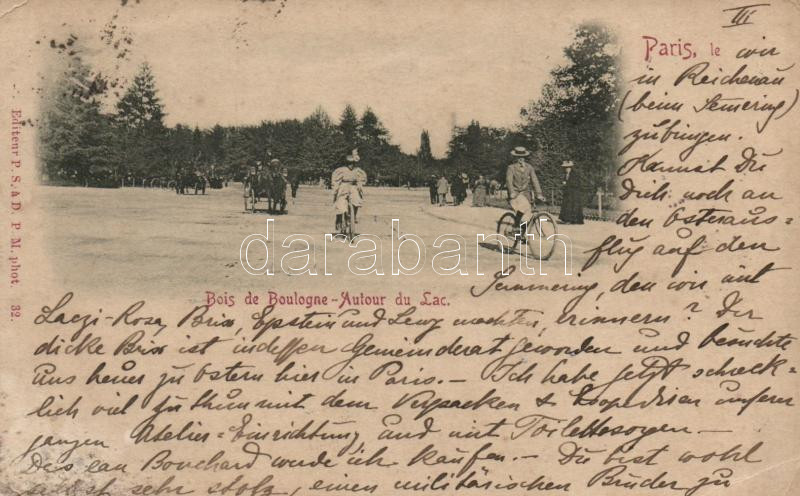 III
Paris, le wir
in Reichenau
(beim Semering)
zubringen.
Kannst Du
Dich noch an
den Osteraus-
flug auf den
Semmering, den wir mit
Editeur P. S. à D. P M. phot. 32.
darabanth
Bois de Boulogne - Autour du Lac.
Laczi-Rosa, Brix, Epstein und Lewy machten, erinnern? Der
dicke Brix ist indessen Gemeinderat geworden und besuchte
uns heuer zu Ostern hier in Paris. - Ich habe jetzt schreck-
lich viel zu thun mit dem Verpacken & Expedieren unserer
ganzen Atelier-Einrichtung, und mit Toilettesorgen -
Das eau Bouchard werde ich kaufen. - Du bist wohl
sehr stolz, einen militärischen Bruder zu